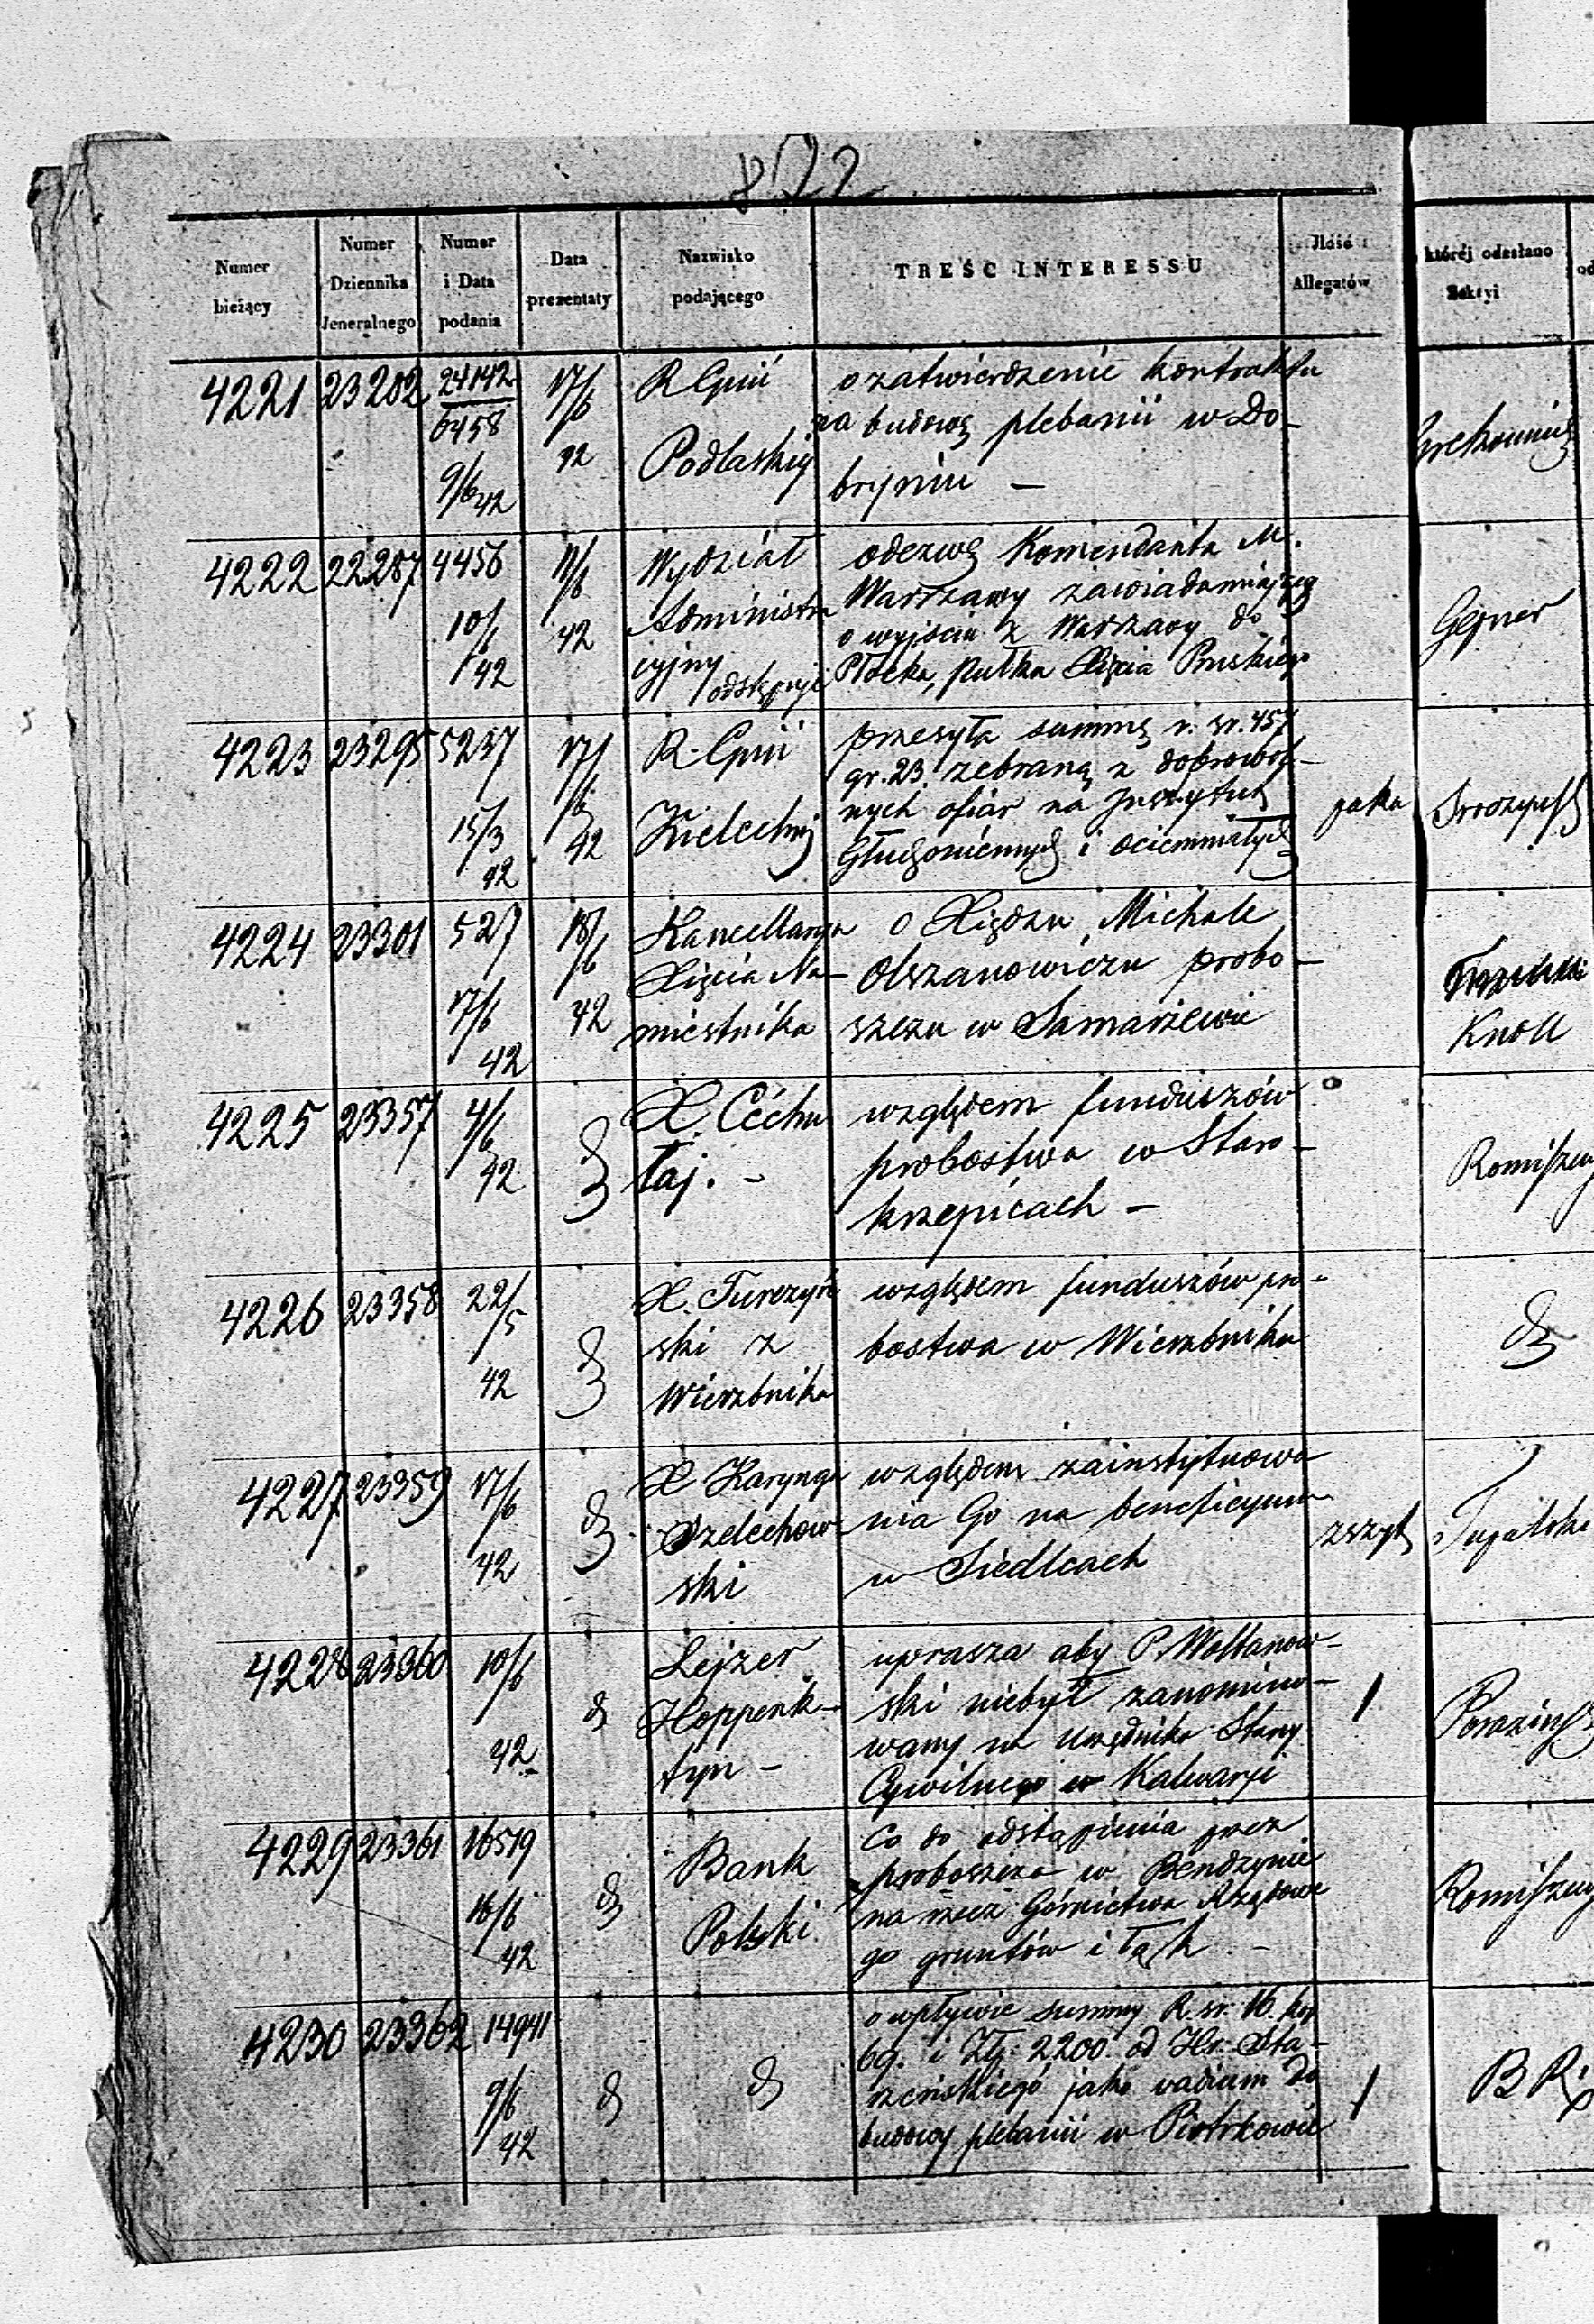 822
Numer bieżący | Numer Dziennika Jeneralnego | Numer i Data podania | Data prezentaty | Nazwisko podającego | TREŚĆ INTERESSU | Ilość Allegatów | której odesłano Sekcyi
4221 | 23282 | 24142/6458 9/6 42 | 17/6 42 | R Gnii Podlaskiej | o zatwierdzenie kontraktu
na budowę plebanii w Do-
bryniu —
4222 | 22287 | 4456 10/6 42 | 11/6 42 | Wydział Administra cyjny odstępuje | odezwę Komendanta M.
Warszawy zawiadamiającą
o wyjściu z Warszawy do
Płocka, pułku Xięcia Pruskiego | Gejner
4223 | 23295 | 5237 15/3 42 | 17/6 42 | R. Gnii Kieleckiej | przesyła summę r. sr. 457
gr. 23. zebraną z dobrowol-
nych ofiar na Instytut
Głuchoniemych i ociemniałych | paka
4224 | 23301 | 527 17/6 42 | 18/6 42 | Kancellarya Xięcia Na- miestnika | o Xiędzu Michale
Olszanowiczu probo-
szczu w Samarzewie | Knoll
4225 | 23357 | 4/6 42 | X. Cichu łaj. — | względem funduszów
probostwa w Staro-
krzepicach —
4226 | 23358 | 22/5 42 | X. Turczyń ski z Wierzbnika | względem funduszów pro-
bostwa w Wierzbniku
4227 | 23359 | 17/6 42 | X Szelechow- ski | względem zainstytuowa
nia Go na beneficyum
w Siedlcach | zszyt
4228 | 23360 | 10/6 42 | Lejzer Hoppenk- | uprasza aby P. Woltanow-
ski niebył zanomino-
wany na Urzędnika Stanu
Cywilnego w Kalwaryi | 1
4229 | 23361 | 16519 16/6 42 | Bank Polski | Co do odstąpienia przez
proboszcza w Bendzynie
na rzecz Górnictwa Rządowe
go gruntów i łąk —
4230 | 23362 | 14941 9/6 42 | o wpływie summy R. sr. 16. kop
69. i Złp. 2200. od Hr. Sta-
rzeńskiego jako vadium do
budowy plebanii w Piotrkowie | 1